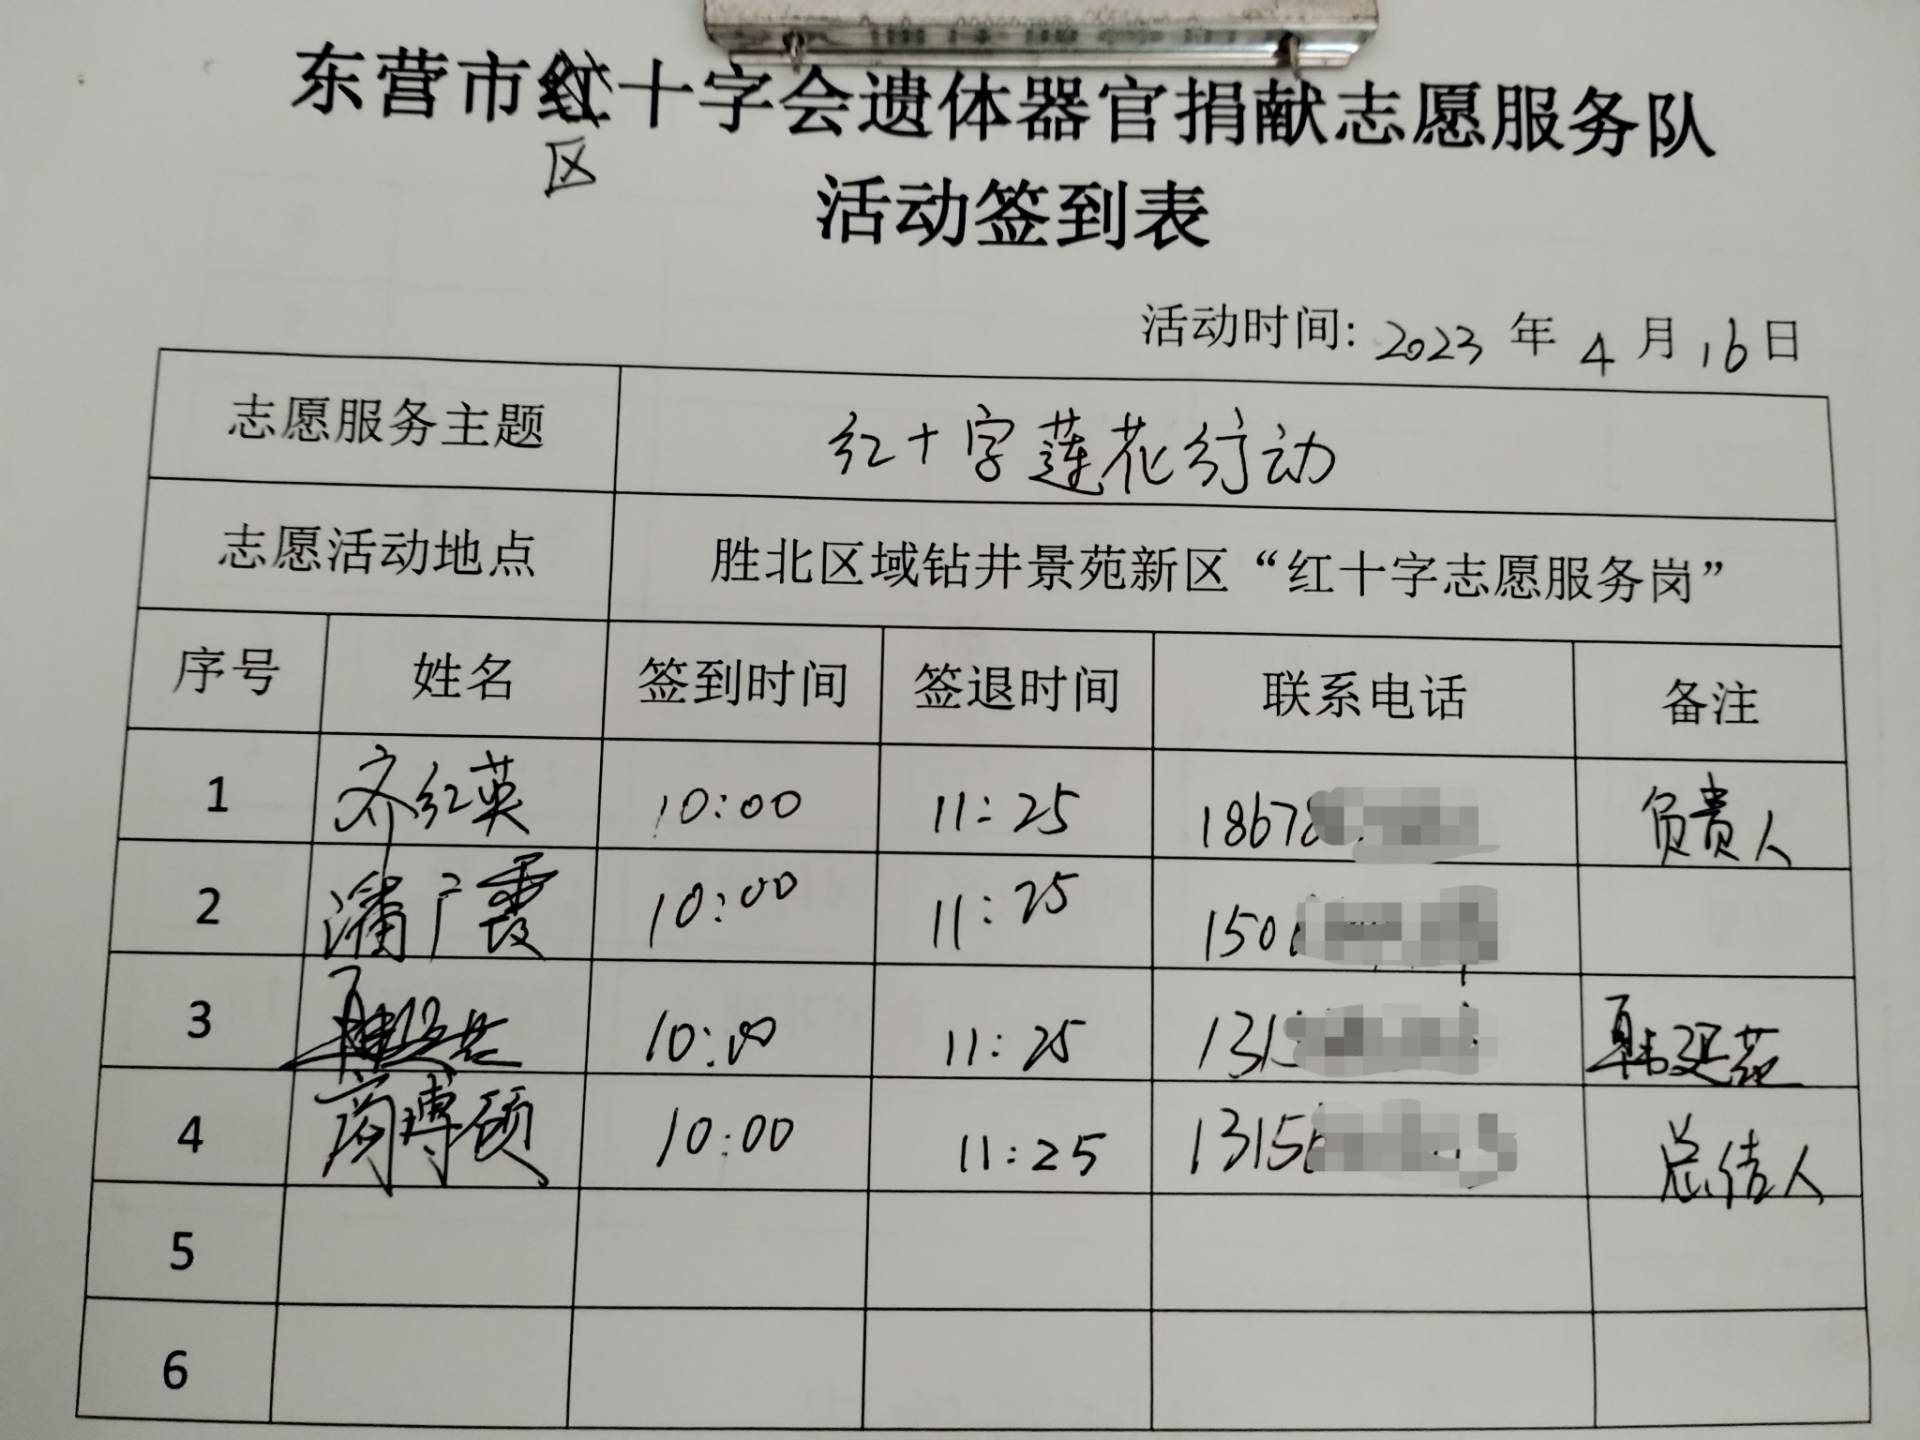 东营市红十字会遗体器官捐献志愿服务队
区
活动签到表
活动时间: 2023 年 4 月 16 日
志愿服务主题 红十字莲花行动
志愿活动地点 胜北区域钻井景苑新区“红十字志愿服务岗”
序号 姓名 签到时间 签退时间 联系电话 备注
1 齐红英 10:00 11:25 18678 负责人
2 潘广霞 10:00 11:25 150
3 10:00 11:25 131 韩延苊
4 商博硕 10:00 11:25 1315 总结人
5
6